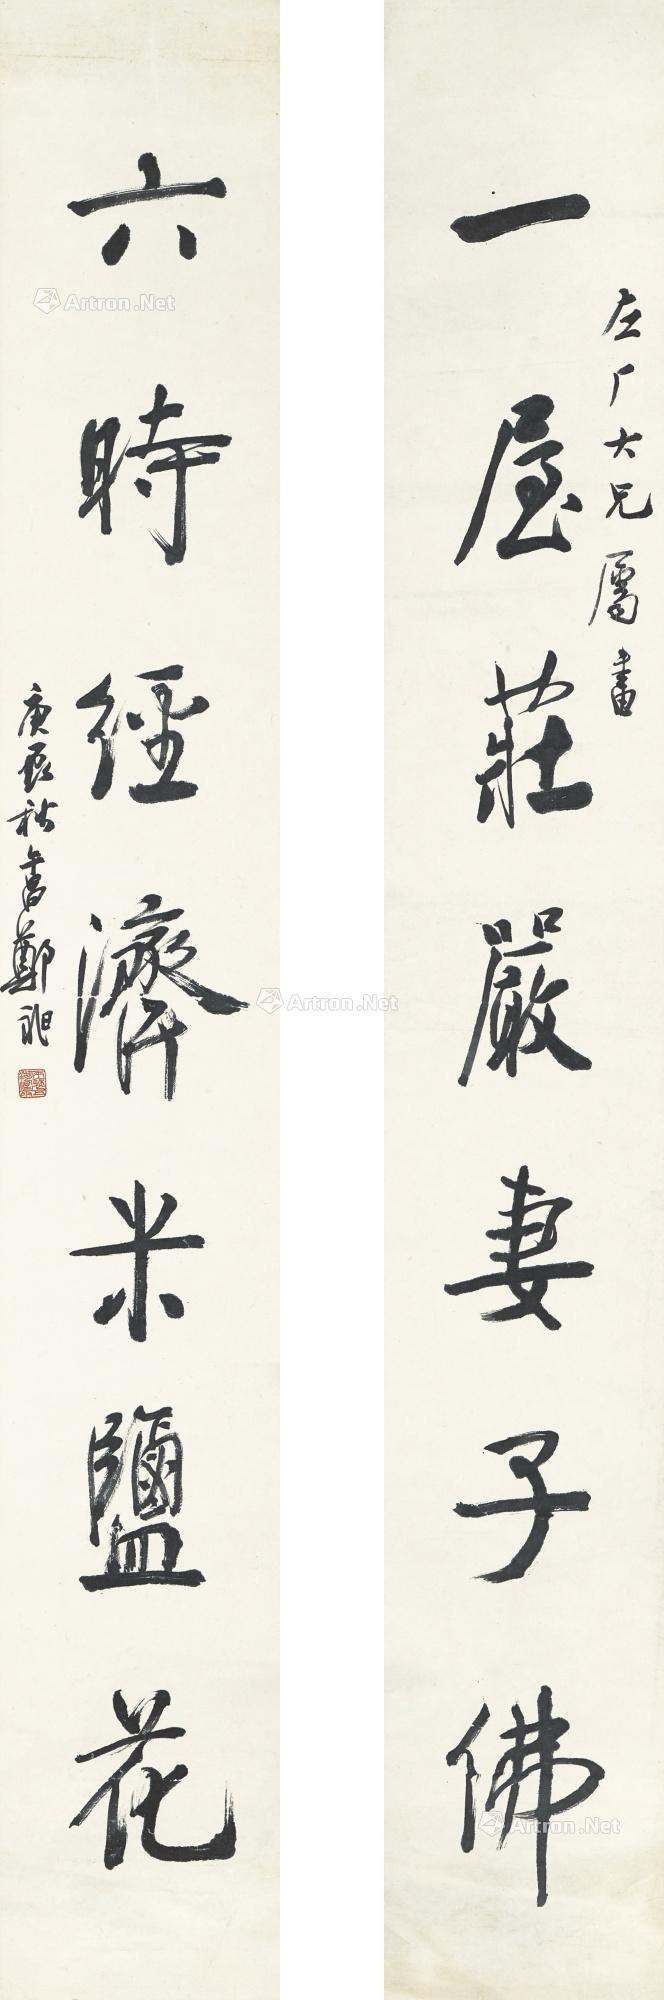 一屋莊嚴妻子佛
左厂大兄屬書
六時經濟米鹽花
庚辰秋書鄭昶
Artron.Net
Artron.Net
Artron.Net